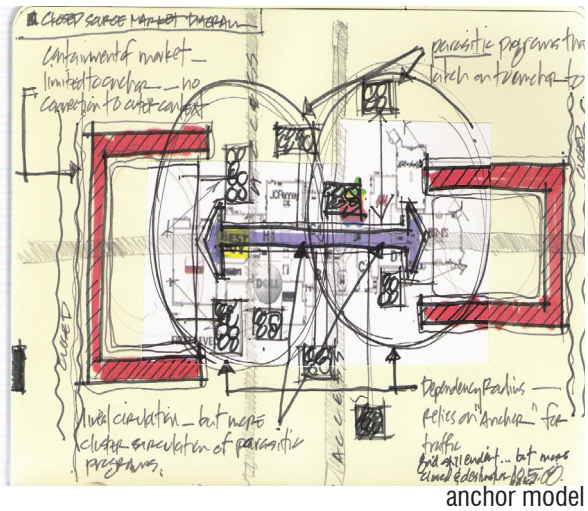 CLOSED SOURCE MARKET DIAGRAM
Containment of market —
limited to anchor — no
connection to outer context
parasitic programs that
latch on to anchor to
ACCESS
JCPenney
BEST
DELL
CLOSED
ACCESS
linear circulation — but more
cluster circulation of parasitic
programs.
Dependency Radius —
Relies on "Anchor" for
traffic
Grid still evident... but more
closed &
anchor model